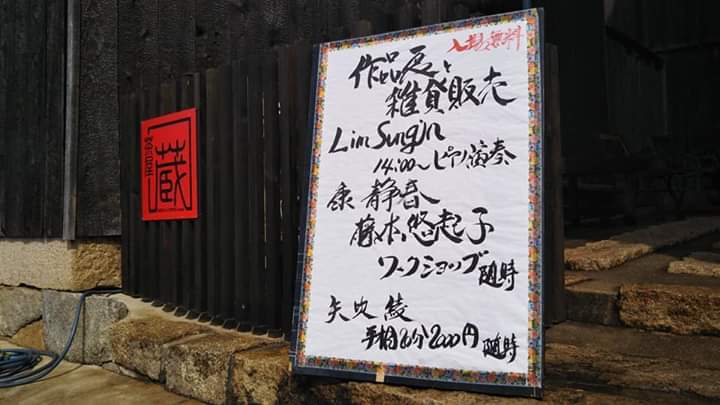 入場無料
作品展と
雑貨販売
Lim Sungjn
14:00〜ピアノ演奏
康 静春
藤本悠起子
ワークショップ随時
矢吹 綾
手相20分2000円 随時
蔵